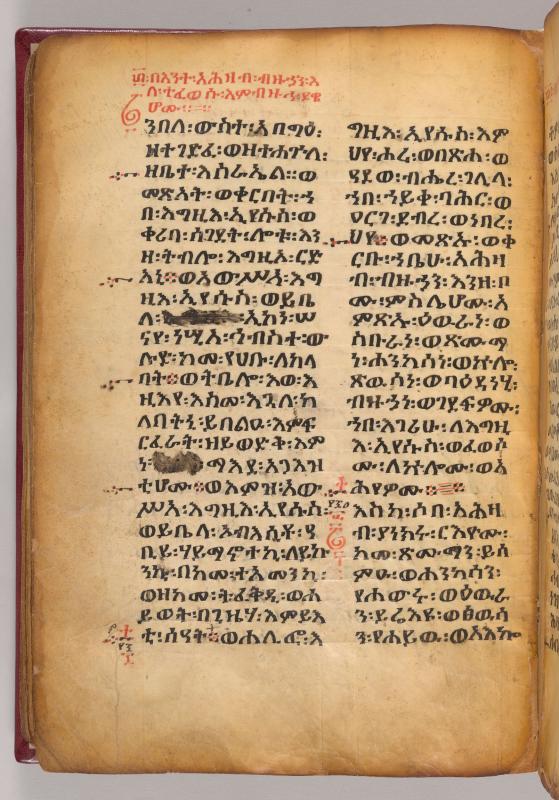 ፴፡በእንተ፡አሕዛብ፡ብዙኃን፡እ
ለ፡ተፈወሱ፡እምብዙኅ፡ደዌ
ሆሙ።
ንበለ፡ውስተ፡አባግዕ፡
ዘተገድፈ፡ወዘተሐጕለ፡
ዘቤተ፡እስራኤል።ወ
መጽአት፡ወቀርበት፡ኀ
በ፡እግዚእ፡ኢየሱስ፡ወ
ቀሪባ፡ሰገደት፡ሎቱ፡እን
ዘ፡ትብሎ፡እግዚኦ፡ርድ
አኒ፨ወአውሥአ፡እግ
ዚእ፡ኢየሱስ፡ወይቤ
ላ፡ ኢኮነ፡ሠ
ናየ፡ነሢአ፡ኅብስተ፡ው
ሉድ፡ከመ፡የሀቡ፡ለከላ
ባት፨ወትቤሎ፡እወ፡እ
ዚእየ፡እስመ፡እጓለ፡ከ
ለባትኒ፡ይበልዑ፡እምፍ
ርፈራት፡ዘይወድቅ፡እም
ነ፡ ማእደ፡አጋእዝ
ቲሆሙ፨ወእምዝ፡አው
ሥአ፡እግዚእ፡ኢየሱስ፡
ወይቤላ፡ኦብእሲቶ፡ዓ
ቢይ፡ሃይማኖተኪ፡ለይኩ
ንኪ፡በከመ፡ተአመንኪ፡
ወዘከመ፡ትፈቅዲ፡ወሐ
ይወት፡በጊዜሃ፡እምይእ
ቲ፡ሰዓት፨ወኀሊፎ፡እ
ግዚእ፡ኢየሱስ፡እም
ህየ፡ሖረ፡ወበጽሐ፡ወ
ዓደወ፡ብሔረ፡ገሊላ፡
ኀበ፡ኀይቀ፡ባሕር፡ወ
ዐርገ፡ደብረ፡ወነበረ፡
ህየ፨ወመጽኡ፡ወቀ
ርቡ፡ኀቤሁ፡አሕዛ
ብ፡ብዙኃን፡እንዘ፡ቦ
ሙ፡ምስሌሆሙ፡አ
ምጽኡ፡ዕዉራነ፡ወ
ስቡራነ፡ወጽሙማ
ነ፡ሐንካሳነ፡ወኵሎ፡
ጽዉሳነ፡ወባዕዳነሂ፡
ብዙኃነ፡ወገደፍዎሙ፡
ኀበ፡እገሪሁ፡ለእግዚ
እ፡ኢየሱስ፡ወፈወሶ
ሙ፡ለኵሎሙ፡ወአ
ሕየዎሙ፨
እስከ፡ሶበ፡አሕዛ
ብ፡ያነክሩ፡ርእዮሙ፡
ከመ፡ጽሙማን፡ይሰ
ምዑ፡ወሐንካሳን፡
የሐውሩ፡ወዕዉራ
ን፡ይሬእዩ፡ወፅዉሳ
ን፡የሐይዉ፡ወአእኰ